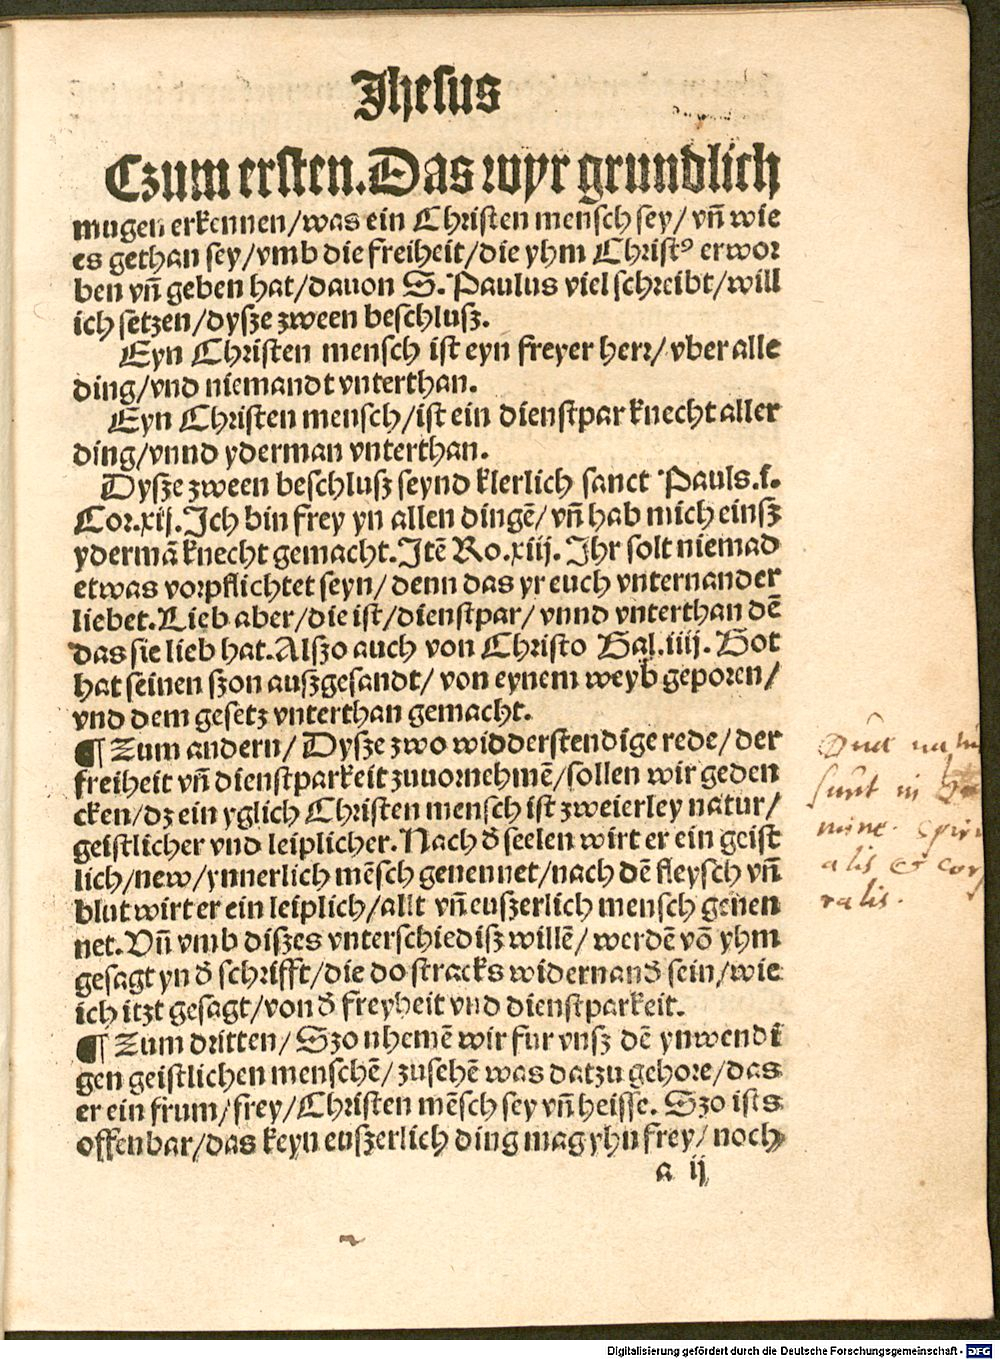 Jhesus
Czum ersten. Das wyr grundlich
mugen erkennen/was ein Christen mensch sey/ vñ wie
es gethan sey/vmb die freiheit/die yhm Christꝰ erwor
ben vñ geben hat/dauon S. Paulus viel schreibt/will
ich setzen/dysze zween beschlusz.
Eyn Christen mensch ist eyn freyer herr/ vber alle
ding/vnd niemandt vnterthan.
Eyn Christen mensch/ist ein dienstpar knecht aller
ding/vnnd yderman vnterthan.
Dysze zween beschlusz seynd klerlich sanct Pauls.i.
Cor.xij. Ich bin frey yn allen dingē/ vñ hab mich einsz
ydermā knecht gemacht. Itē Ro.xiij. Ihr solt niemad
etwas vorpflichtet seyn/ denn das yr euch vnternander
liebet. Lieb aber/die ist/dienstpar/ vnnd vnterthan dē
das sie lieb hat. Alszo auch von Christo Gal.iiij. Got
hat seinen szon auszgesandt/ von eynem weyb geporen/
vnd dem gesetz vnterthan gemacht.
¶ Zum andern/ Dysze zwo widderstendige rede/ der
freiheit vñ dienstparkeit zuuornehmē/sollen wir geden
cken/dz ein yglich Christen mensch ist zweierley natur/
geistlicher vnd leiplicher. Nach d̄ seelen wirt er ein geist
lich/new/ynnerlich mēsch genennet/nach dē fleysch vñ
blut wirt er ein leiplich/allt vñ euszerlich mensch genen
net. Vñ vmb diszes vnterschiedisz willē/ werdē vō yhm
gesagt yn d̄ schrifft/die do stracks widernand̄ sein/wie
ich itzt gesagt/von d̄ freyheit vnd dienstparkeit.
¶ Zum dritten/ Szo nhemē wir fur vnsz dē ynwendi
gen geistlichen menschē/ zusehē was datzu gehore/das
er ein frum/frey/Christen mēsch sey vñ heisse. Szo ists
offenbar/das keyn euszerlich ding mag yhn frey/ noch
a ij
Duæ natu
sunt in ho
mine. spiri
alis & corp
ralis.
Digitalisierung gefördert durch die Deutsche Forschungsgemeinschaft - DFG